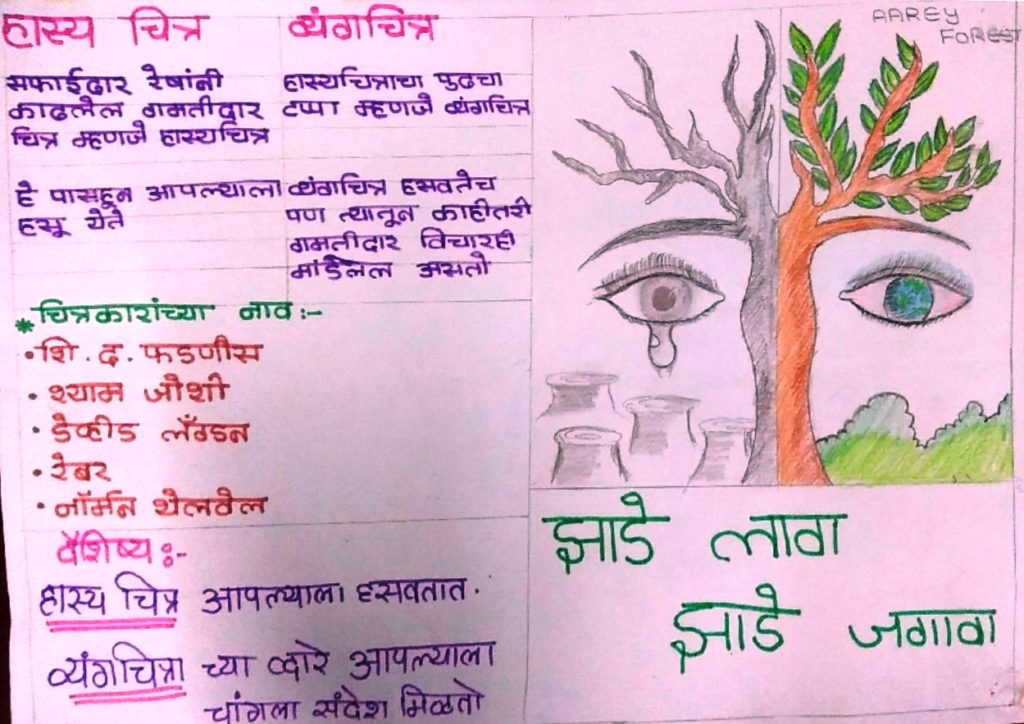 हास्य चित्र
सफाईदार रेषांनी
काढलेल गमतीदार
चित्र म्हणजे हास्यचित्र
हे पासहून आपल्याला
हसू येते
व्यंगचित्र
हास्यचित्राचा पुढचा
टप्पा म्हणजे व्यंगचित्र
व्यंगचित्र हसवतेच
पण त्यातून काहीतरी
गमतीदार विचारही
मांडलेल असतो
* चित्रकारांच्या नाव :-
• शि. द. फडणीस
• श्याम जोशी
• डेव्हीड लँग्डन
• रेबर
• नॉर्मन थेलवेल
वैशिष्य :-
हास्य चित्र आपल्याला हसवतात.
व्यंगचित्रा च्या व्दारे आपल्याला
चांगला संदेश मिळतो
AAREY
FOREST
झाडे लावा
झाडे जगावा